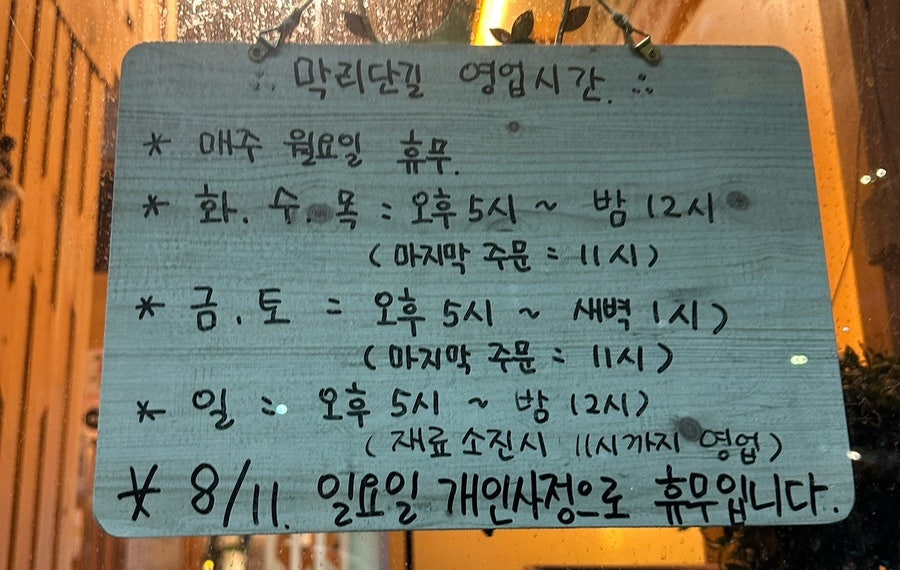 ∴ 막리단길 영업시간. ∴
* 매주 월요일 휴무.
* 화. 수. 목 : 오후 5시 ~ 밤 12시
( 마지막 주문 : 11시 )
* 금. 토 : 오후 5시 ~ 새벽 1시 )
( 마지막 주문 : 11시 )
* 일 : 오후 5시 ~ 밤 12시 )
( 재료 소진시 11시까지 영업 )
* 8/11. 일요일 개인사정으로 휴무입니다.